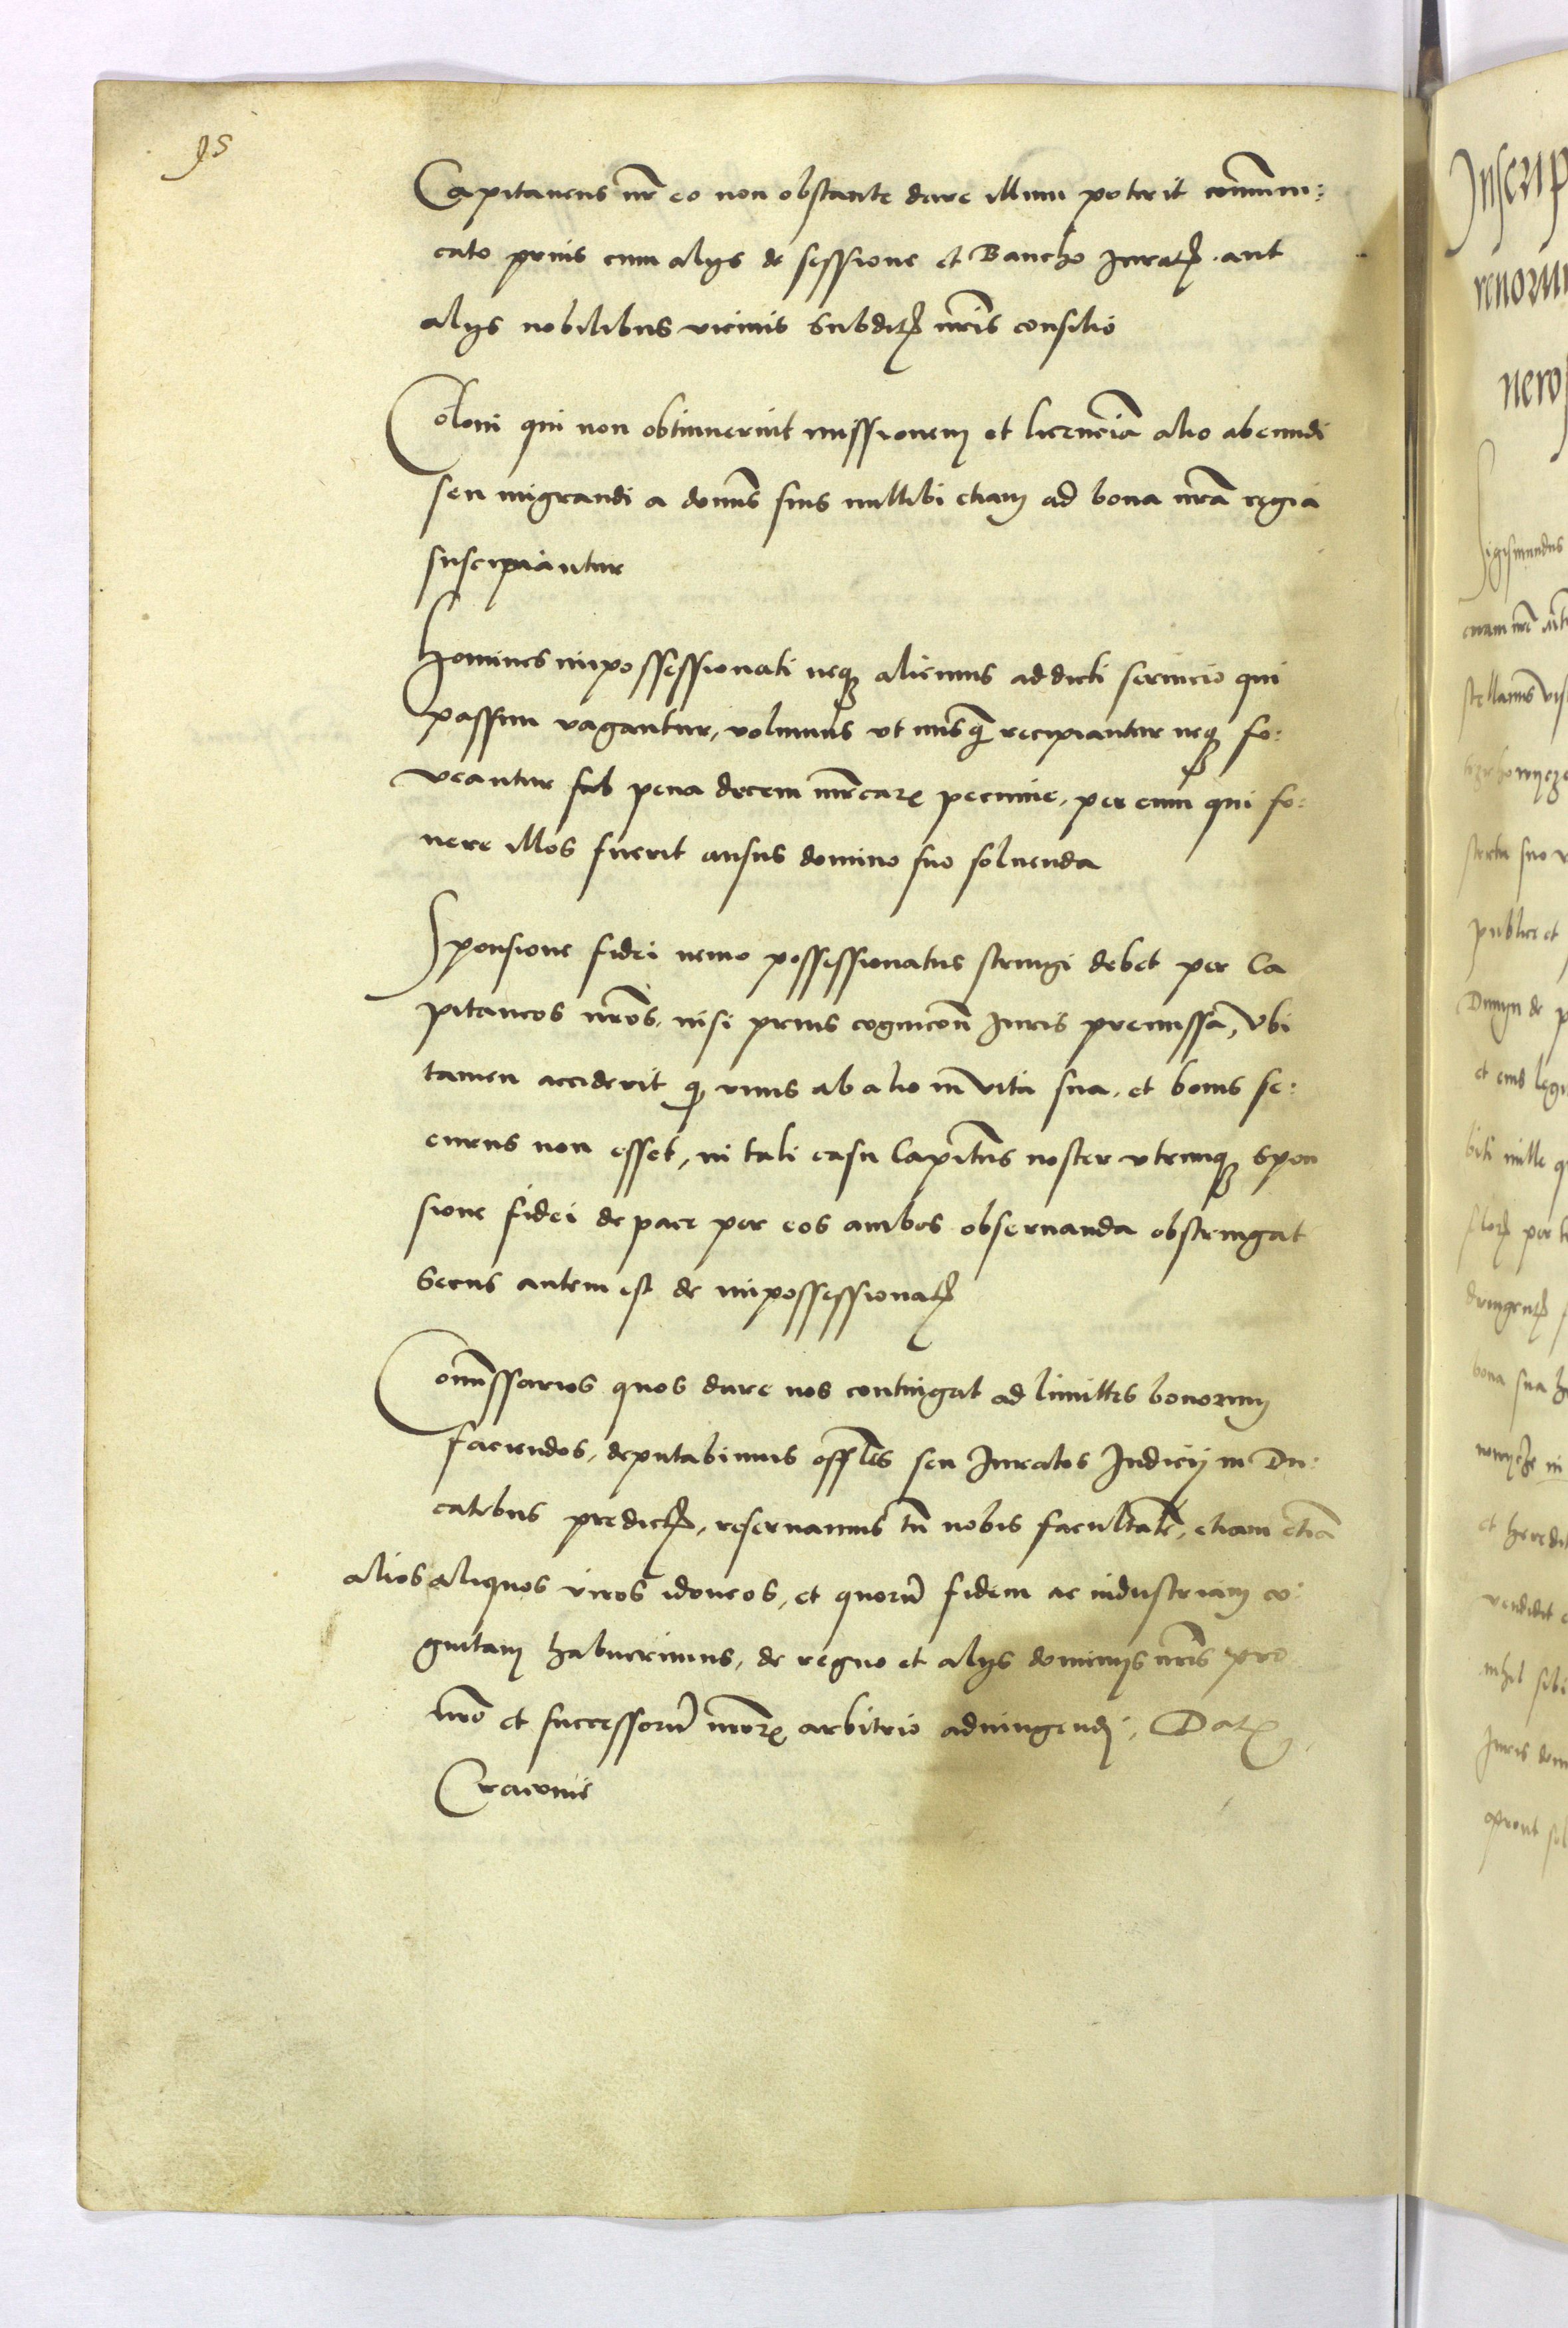 98
Capitaneus nr̄ eo non obstante dare illum poterit commu:
cato prius cum alijs de sessione et Bancho Juratꝭ. aut
alijs nobilibus vicinis Subditꝭ nr̄is consilio
Coloni qui non obtinuerint missionem et licenciā alio abeundi
seu migrandi a domis suis nullibi etiam ad bona nr̄a regia
suscipiantur
Homines impossessionati neqꝫ alicuius addicti seruicio qui
passim vagantur, volumus vt nusqꝫ recipiantur neqꝫ fo:
veantur sub pena decem mr̄carꝝ pecunie, per eum qui fo:
uere illos fuerit ausus domino suo soluenda
Sponsione fidei nemo possessionatus stringi debet per Ca
pitaneos nr̄os, nisi prius cognicōe Juris premissa, Vbi
tamen acciderit ꝙ vnus ab alio in vita sua, et bonis se:
curus non esset, in tali casu Capitn̄s noster vtrumqꝫ Spon
sione fidei de pace per eos ambos obseruanda obstringat
Secus autem est de impossessionatꝭ
Comissarios quos dare nos contingat ad limittes bonorum
faciendos, deputabimus offlēs seu Juratos Judicij in Du:
catibus predictꝭ, reseruamus tn̄ nobis facultatē, etiam etiā
alios aliquos viros idoneos, et quorū fidem ac industriam co:
gnitam habuerimus, de regno et alijs dominijs nr̄is pro
nr̄o et successorū nr̄orꝝ arbitrio adiungendi, Datꝝ
Cracouie
Inscrip
renorum
nero
Sigismundus
publice et
Dunyn de p
bona sua h
et heredit
vendidit
nihil sibi